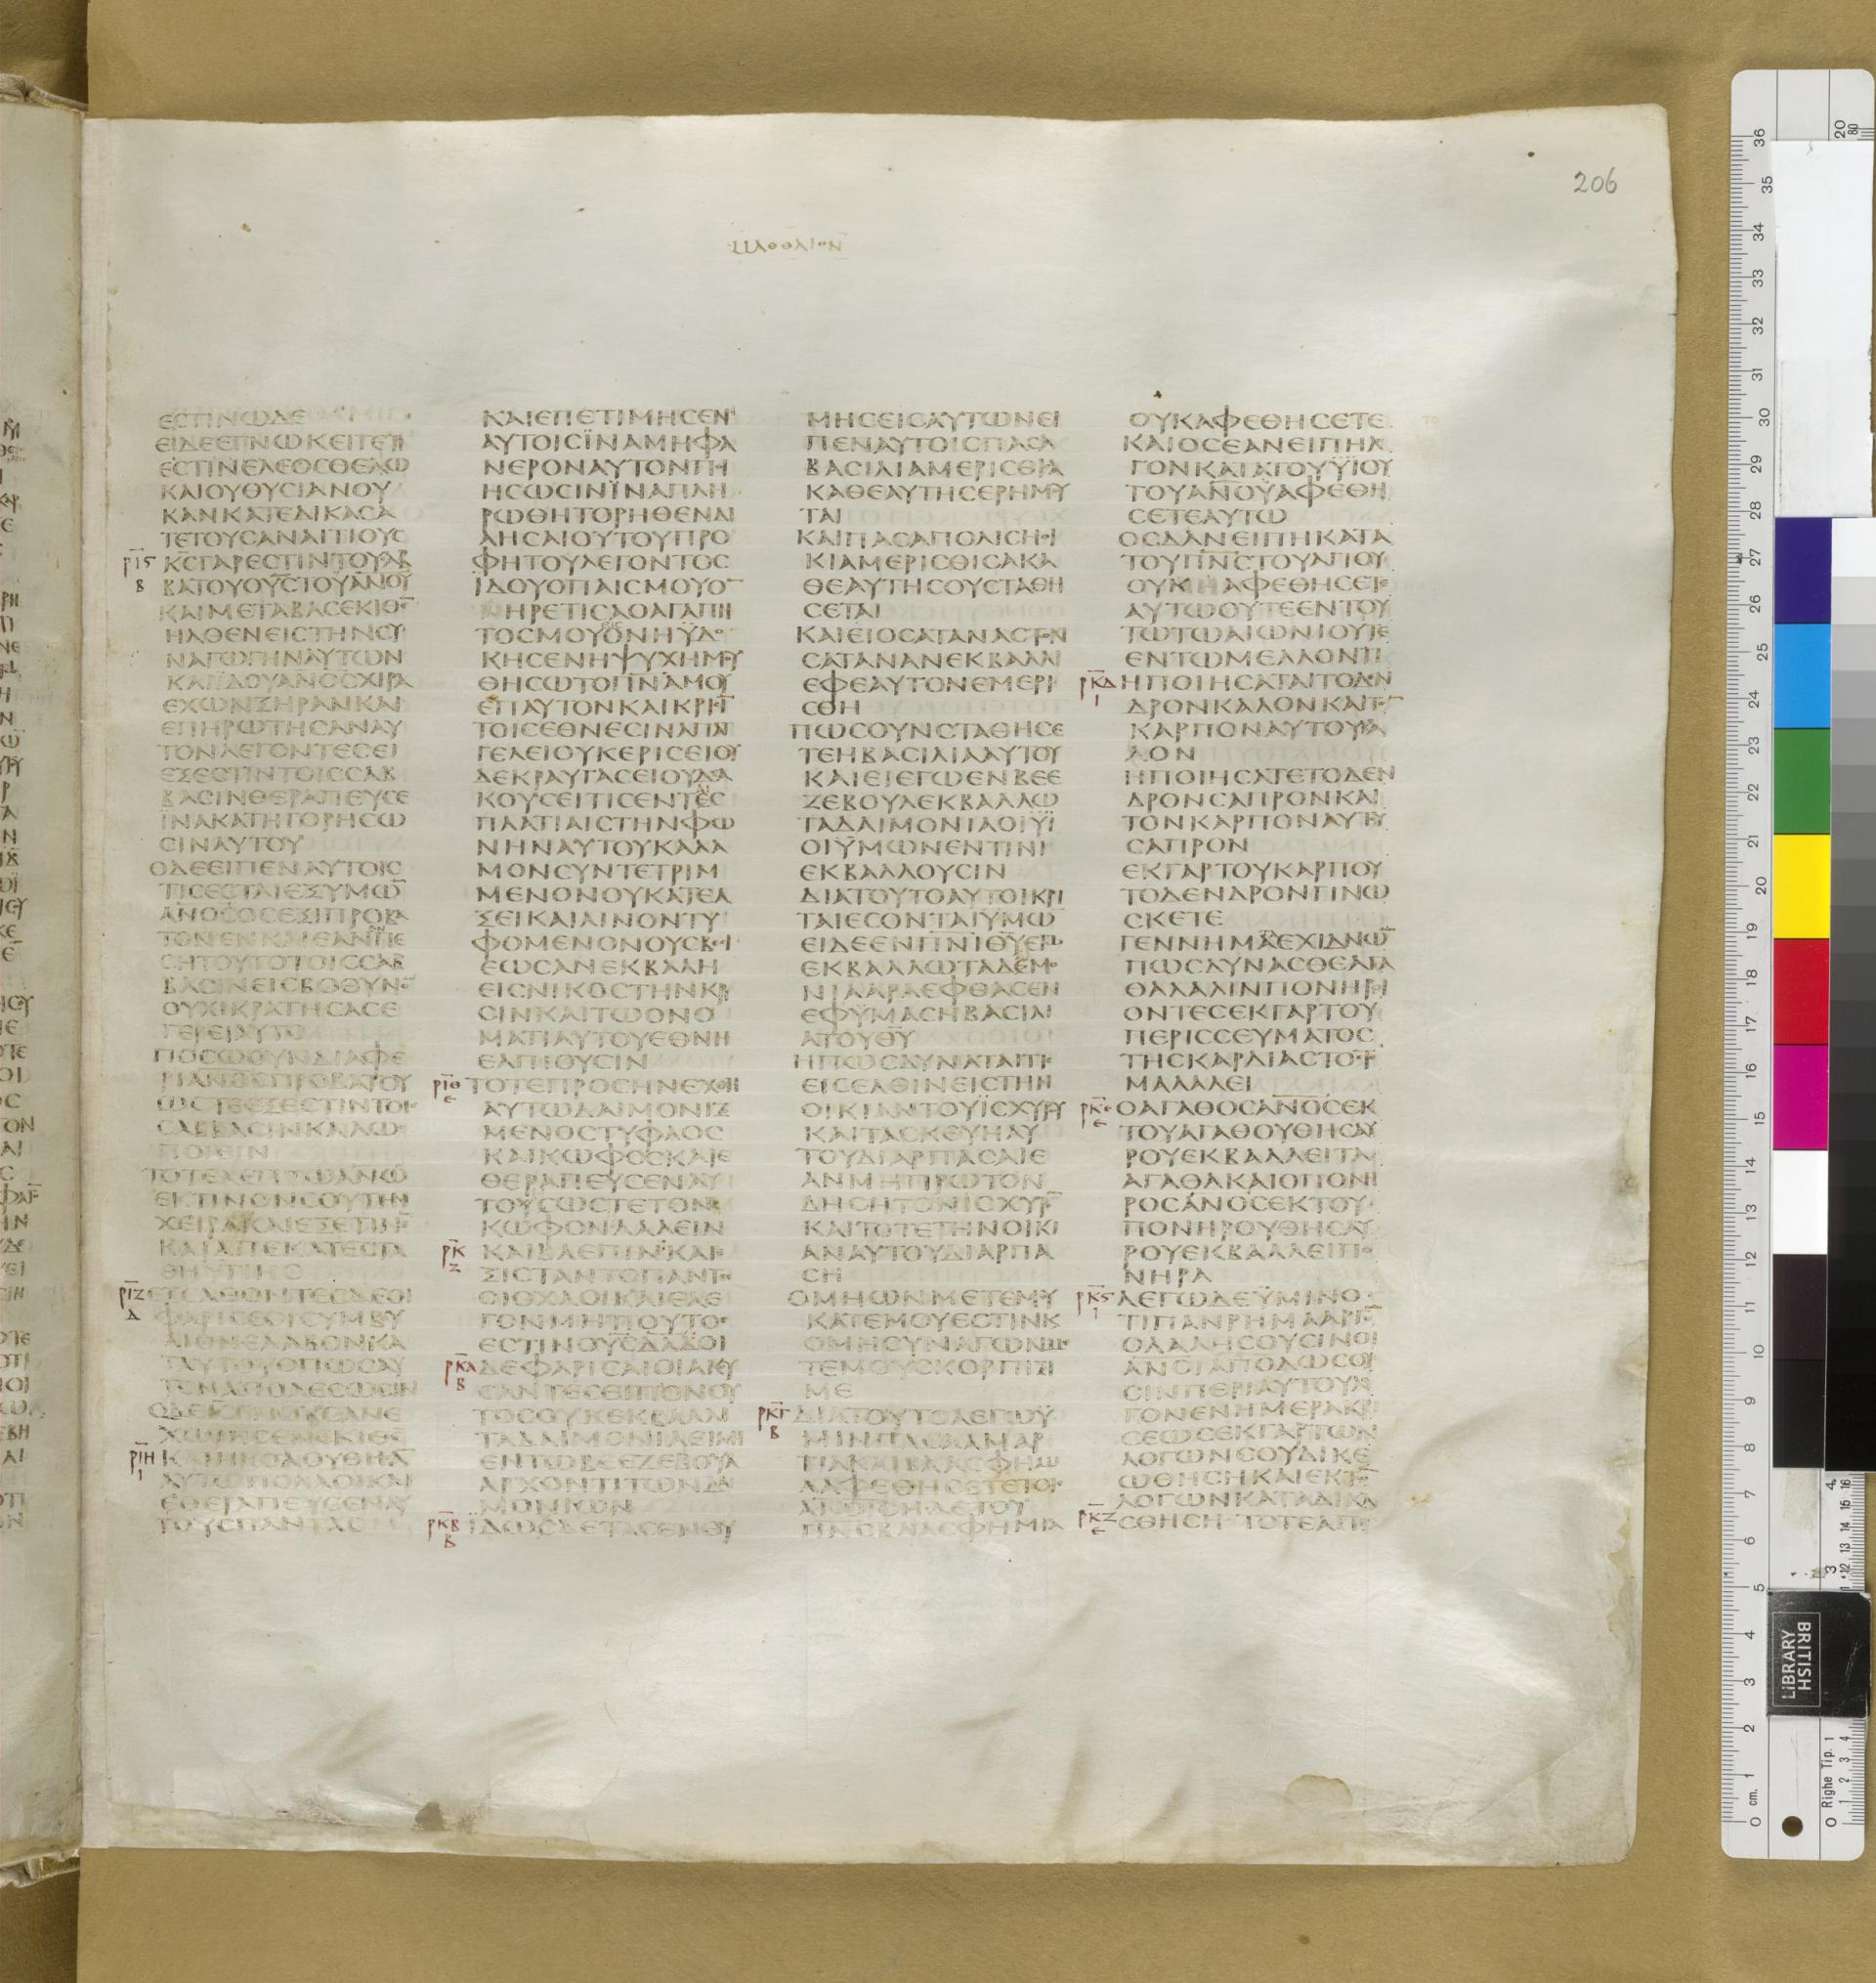 206
ΕСΤΙΝΩΔΕ
ΕΙΔΕΕΓΝΩΚΕΙΤΕΤΙ
ΕСΤΙΝΕΛΕΟСΘΕΛΩ
ΚΑΙΟΥΘΥСΙΑΝΟΥ
ΚΑΝΚΑΤΕΔΙΚΑСΑ
ΤΕΤΟΥСΑΝΑΙΤΙΟΥС
ΚСΓΑΡΕСΤΙΝΤΟΥСΑΒ
ΒΑΤΟΥΟΥСΤΟΥΑΝΟΥ
ΚΑΙΜΕΤΑΒΑСΕΚΙΘΕ
ΗΛΘΕΝΕΙСΤΗΝСΥ
ΝΑΓΩΓΗΝΑΥΤΩΝ
ΚΑΙΪΔΟΥΑΝΟСΧΙΡΑ
ΕΧΩΝΞΗΡΑΝΚΑΙ
ΕΠΗΡΩΤΗСΑΝΑΥ
ΤΟΝΛΕΓΟΝΤΕСΕΙ
ΕΞΕСΤΙΝΤΟΙССΑΒ
ΒΑСΙΝΘΕΡΑΠΕΥСΕ
ΪΝΑΚΑΤΗΓΟΡΗСΩ
СΙΝΑΥΤΟΥ
ΟΔΕΕΙΠΕΝΑΥΤΟΙС
ΤΙСΕСΤΑΙΕΞΥΜΩ
ΑΝΟСΟСΕΞΙΠΡΟΒΑ
ΤΟΝΕΝΚΑΙΕΑΝΠΕ
СΗΤΟΥΤΟΤΟΙССΑΒ
ΒΑСΙΝΕΙСΒΟΘΥΝΟ
ΟΥΧΙΚΡΑΤΗСΑСΕ
ΓΕΡΕΙΑΥΤΟ
ΠΟСΩΟΥΝΔΙΑΦΕ
ΡΙΑΝΘСΠΡΟΒΑΤΟΥ
ΩСΤΕΕΞΕСΤΙΝΤΟΙС
СΑΒΒΑСΙΝΚΑΛΩС
ΠΟΙΕΙΝ
ΤΟΤΕΛΕΓΙΤΩΑΝΩ
ΕΚΤΙΝΟΝСΟΥΤΗΝ
ΧΕΙΡΑΚΑΙΕΞΕΤΙΝΕ
ΚΑΙΑΠΕΚΑΤΕСΤΑ
ΘΗΫΓΙΗС
ΕΞΕΛΘΟΝΤΕСΔΕΟΙ
ΦΑΡΙСΕΟΙСΥΜΒΟΥ
ΛΙΟΝΕΛΑΒΟΝΚΑ
ΤΑΥΤΟΥΟΠΩСΑΥ
ΤΟΝΑΠΟΛΕСΩСΙΝ
ΟΔΕΙСΓΝΟΥСΑΝΕ
ΧΩΡΗСΕΝΕΚΙΘΕ
ΚΑΙΗΚΟΛΟΥΘΗСΑ
ΑΥΤΩΠΟΛΛΟΙΚΑΙ
ΕΘΕΡΑΠΕΥСΕΝΑΥ
ΤΟΥСΠΑΝΤΑС
ΚΑΙΕΠΕΤΙΜΗСΕΝ
ΑΥΤΟΙСΪΝΑΜΗΦΑ
ΝΕΡΟΝΑΥΤΟΝΠΗ
ΗСΩСΙΝΪΝΑΠΛΗ
ΡΩΘΗΤΟΡΗΘΕΝΔΙ
ΑΗСΑΙΟΥΤΟΥΠΡΟ
ΦΗΤΟΥΛΕΓΟΝΤΟС
ΪΔΟΥΟΠΑΙСΜΟΥΟ
ΗΡΕΤΙСΑΟΑΓΑΠΗ
ΤΟСΜΟΥΟΝΗΫΔΟ
ΚΗСΕΝΗΨΥΧΗΜΟΥ
ΘΗСΩΤΟΠΝΑΜΟΥ
ΕΠΑΥΤΟΝΚΑΙΚΡΙСΙ
ΤΟΙСΕΘΝΕСΙΝΑΠΑΓ
ΓΕΛΕΙΟΥΚΕΡΙСΕΙΟΥ
ΔΕΚΡΑΥΓΑСΕΙΟΥΔΑ
ΚΟΥСΕΙΤΙСΕΝΤΕС
ΠΛΑΤΙΑΙСΤΗΝΦΩ
ΝΗΝΑΥΤΟΥΚΑΛΑ
ΜΟΝСΥΝΤΕΤΡΙΜ
ΜΕΝΟΝΟΥΚΑΤΕΑ
ΞΕΙΚΑΙΛΙΝΟΝΤΥ
ΦΟΜΕΝΟΝΟΥСΒΕСΙ
ΕΩСΑΝΕΚΒΑΛΗ
ΕΙСΝΙΚΟСΤΗΝΚΡΙ
СΙΝΚΑΙΤΩΟΝΟ
ΜΑΤΙΑΥΤΟΥΕΘΝΗ
ΕΛΠΙΟΥСΙΝ
ΤΟΤΕΠΡΟСΗΝΕΧΘΗ
ΑΥΤΩΔΑΙΜΟΝΙΖ
ΜΕΝΟСΤΥΦΛΟС
ΚΑΙΚΩΦΟСΚΑΙΕ
ΘΕΡΑΠΕΥСΕΝΑΥ
ΤΟΥСΩСΤΕΤΟΝ
ΚΩΦΟΝΛΑΛΕΙΝ
ΚΑΙΒΛΕΠΙΝΚΑΙΕ
ΞΙСΤΑΝΤΟΠΑΝΤΕС
ΟΙΟΧΛΟΙΚΑΙΕΛΕ
ΓΟΝΜΗΤΙΟΥΤΟС
ΕСΤΙΝΟΥСΔΑΔΟΙ
ΔΕΦΑΡΙСΑΙΟΙΑΚΟΥ
СΑΝΤΕСΕΙΠΟΝΟΥ
ΤΟСΟΥΚΕΚΒΑΛΛΙ
ΤΑΔΑΙΜΟΝΙΑΕΙΜΗ
ΕΝΤΩΒΕΕΖΕΒΟΥΛ
ΑΡΧΟΝΤΙΤΩΝΔΑΙ
ΜΟΝΙΩΝ
ΪΔΩСΔΕΤΑСΕΝΘΥ
ΜΗСΕΙСΑΥΤΩΝΕΙ
ΠΕΝΑΥΤΟΙСΠΑСΑ
ΒΑСΙΛΙΑΜΕΡΙСΘΙСΑ
ΚΑΘΕΑΥΤΗСΕΡΗΜΟΥ
ΤΑΙ
ΚΑΙΠΑСΑΠΟΛΙСΗΟΙ
ΚΙΑΜΕΡΙСΘΙСΑΚΑ
ΘΕΑΥΤΗСΟΥСΤΑΘΗ
СΕΤΑΙ
ΚΑΙΕΙΟСΑΤΑΝΑСΤΟΝ
СΑΤΑΝΑΝΕΚΒΑΛΛΙ
ΕΦΕΑΥΤΟΝΕΜΕΡΙ
СΘΗ
ΠΩСΟΥΝСΤΑΘΗСΕ
ΤΕΗΒΑСΙΛΙΑΑΥΤΟΥ
ΚΑΙΕΙΕΓΩΕΝΒΕΕ
ΖΕΒΟΥΛΕΚΒΑΛΛΩ
ΤΑΔΑΙΜΟΝΙΑΟΙΫΙ
ΟΙΫΜΩΝΕΝΤΙΝΙ
ΕΚΒΑΛΛΟΥСΙΝ
ΔΙΑΤΟΥΤΟΑΥΤΟΙΚΡΙ
ΤΑΙΕСΟΝΤΑΙΫΜΩ
ΕΙΔΕΕΝΠΝΙΘΥΕΓΩ
ΕΚΒΑΛΛΩΤΑΔΕΜΟ
ΝΙΑΑΡΑΕΦΘΑСΕΝ
ΕΦΫΜΑСΗΒΑСΙΛΙ
ΑΤΟΥΘΥ
ΗΠΩСΔΥΝΑΤΑΙΤΙС
ΕΙСΕΛΘΙΝΕΙСΤΗΝ
ΟΙΚΙΑΝΤΟΥΪСΧΥΡΟΥ
ΚΑΙΤΑСΚΕΥΗΑΥ
ΤΟΥΔΙΑΡΠΑСΑΙΕ
ΑΝΜΗΠΡΩΤΟΝ
ΔΗСΗΤΟΝΙСΧΥΡΟ
ΚΑΙΤΟΤΕΤΗΝΟΙΚΙ
ΑΝΑΥΤΟΥΔΙΑΡΠΑ
СΗ
ΟΜΗΩΝΜΕΤΕΜΟΥ
ΚΑΤΕΜΟΥΕСΤΙΝΚ
ΟΜΗСΥΝΑΓΩΝΜΕ
ΤΕΜΟΥСΚΟΡΠΙΖΙ
ΜΕ
ΔΙΑΤΟΥΤΟΛΕΓΩΫ
ΜΙΝΠΑСΑΑΜΑΡ
ΤΙΑΚΑΙΒΛΑСΦΗΜΙ
ΑΑΦΕΘΗСΕΤΕΤΟΙС
ΑΝΟΙСΗΔΕΤΟΥ
ΠΝСΒΛΑСΦΗΜΙΑ
ΟΥΚΑΦΕΘΗСΕΤΕ
ΚΑΙΟСΕΑΝΕΙΠΗΛΟ
ΓΟΝΚΑΤΑΤΟΥΫΪΟΥ
ΤΟΥΑΝΟΫΑΦΕΘΗ
СΕΤΕΑΥΤΩ
ΟСΔΑΝΕΙΠΗΚΑΤΑ
ΤΟΥΠΝСΤΟΥΑΓΙΟΥ
ΟΥΚ ΑΦΕΘΗСΕΤΕ
ΑΥΤΩΟΥΤΕΕΝΤΟΥ
ΤΩΤΩΑΙΩΝΙΟΥΤΕ
ΕΝΤΩΜΕΛΛΟΝΤΙ
ΗΠΟΙΗСΑΤΑΙΤΟΔΕΝ
ΔΡΟΝΚΑΛΟΝΚΑΙΤΟ
ΚΑΡΠΟΝΑΥΤΟΥΚΑ
ΛΟΝ
ΗΠΟΙΗСΑΤΕΤΟΔΕΝ
ΔΡΟΝСΑΠΡΟΝΚΑΙ
ΤΟΝΚΑΡΠΟΝΑΥΤΟΥ
СΑΠΡΟΝ
ΕΚΓΑΡΤΟΥΚΑΡΠΟΥ
ΤΟΔΕΝΔΡΟΝΓΙΝΩ
СΚΕΤΕ
ΓΕΝΝΗΜΑΤΑΕΧΙΔΝΩ
ΠΩСΔΥΝΑСΘΕΑΓΑ
ΘΑΛΑΛΙΝΠΟΝΗΡΟΙ
ΟΝΤΕСΕΚΓΑΡΤΟΥ
ΠΕΡΙССΕΥΜΑΤΟС
ΤΗСΚΑΡΔΙΑСΤΟСΤΟ
ΜΑΛΑΛΕΙ
ΟΑΓΑΘΟСΑΝΟСΕΚ
ΤΟΥΑΓΑΘΟΥΘΗСΑΥ
ΡΟΥΕΚΒΑΛΛΕΙΤΑ
ΑΓΑΘΑΚΑΙΟΠΟΝΗ
ΡΟСΑΝΟСΕΚΤΟΥ
ΠΟΝΗΡΟΥΘΗСΑΥ
ΡΟΥΕΚΒΑΛΛΕΙΠΟ
ΝΗΡΑ
ΛΕΓΩΔΕΫΜΙΝΟ
ΤΙΠΑΝΡΗΜΑΑΡΓΟ
ΟΛΑΛΗСΟΥСΙΝΟΙ
ΑΝΟΙΑΠΟΔΩСΟΥ
СΙΝΠΕΡΙΑΥΤΟΥΛΟ
ΓΟΝΕΝΗΜΕΡΑΚΡΙ
СΕΩСΕΚΓΑΡΤΩΝ
ΛΟΓΩΝСΟΥΔΙΚΕ
ΩΘΗСΗΚΑΙΕΚΤΩ
ΛΟΓΩΝΚΑΤΑΔΙΚΑ
СΘΗСΗ ΤΟΤΕΑΠΕ
BRITISH
LIBRARY